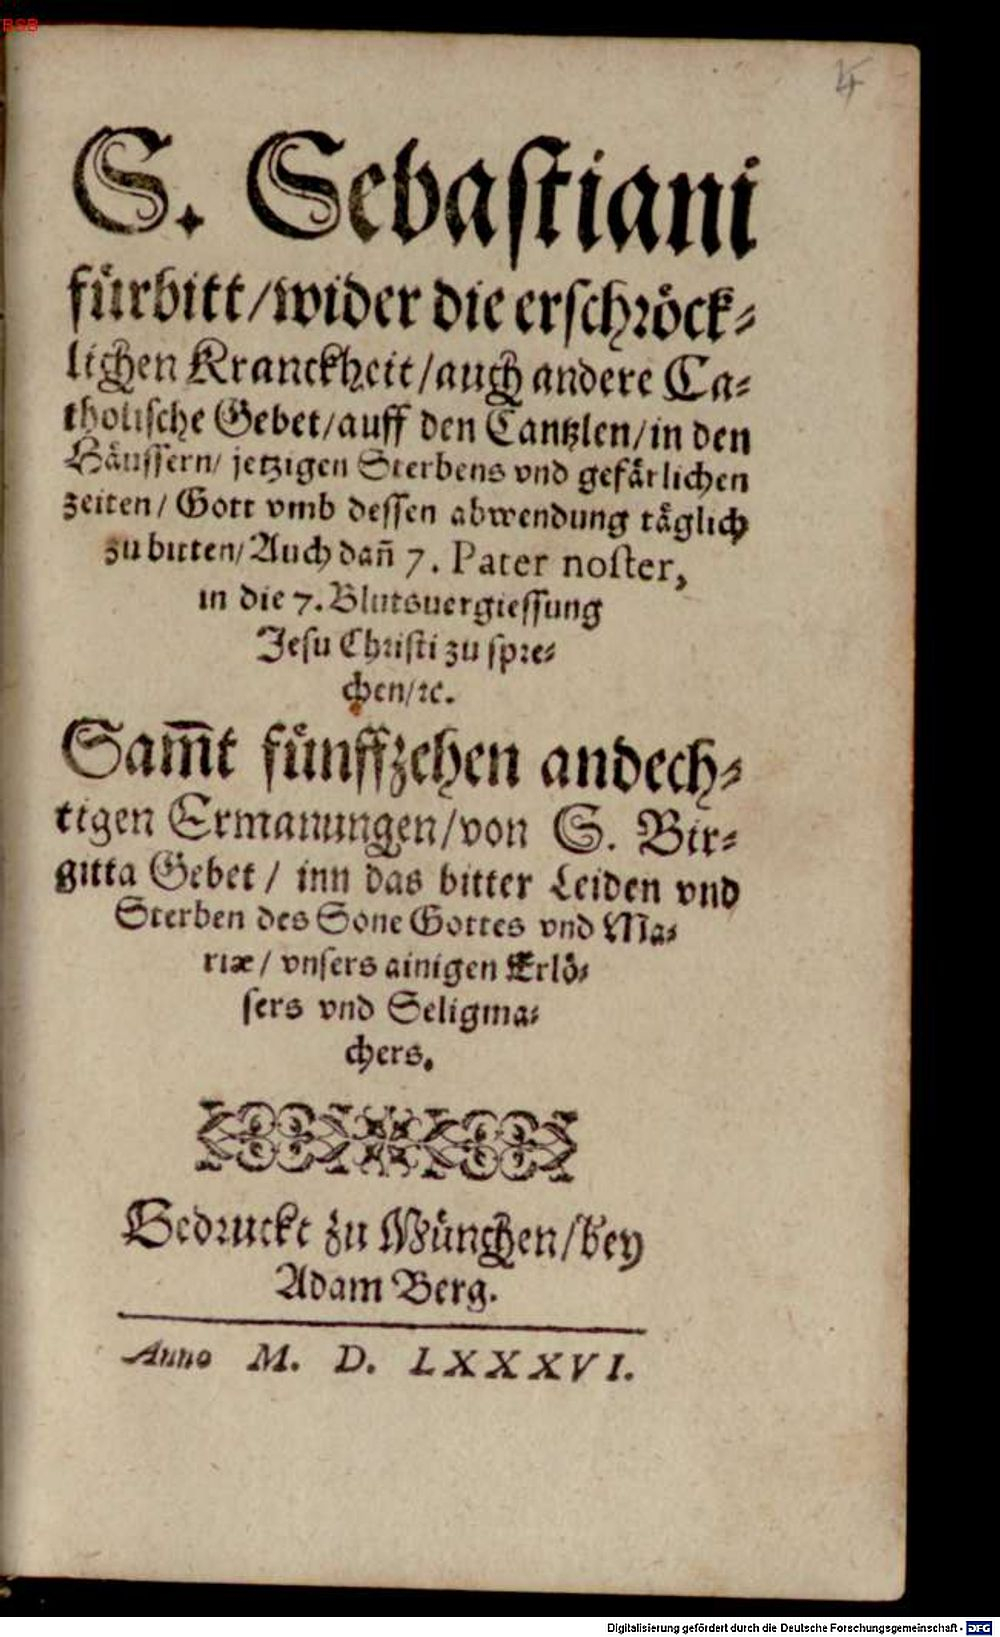 BSB
4
S. Sebastiani
fürbitt/wider die erschröck⸗
lichen Kranckheit/auch andere Ca⸗
tholische Gebet/auff den Cantzlen/in den
Häussern/ jetzigen Sterbens vnd gefärlichen
zeiten/ Gott vmb dessen abwendung täglich
zu bitten/Auch dañ 7. Pater noster,
in die 7. Blutsuergiessung
Jesu Christi zu spre⸗
chen/ꝛc.
Sam̅t fünffzehen andech⸗
tigen Ermanungen/von S. Bir⸗
gitta Gebet/ inn das bitter Leiden vnd
Sterben des Sone Gottes vnd Ma⸗
riæ/ vnsers ainigen Erlö⸗
sers vnd Seligma⸗
chers.
Gedruckt zu München/bey
Adam Berg.
Anno M. D. LXXXVI.
Digitalisierung gefördert durch die Deutsche Forschungsgemeinschaft - DFG